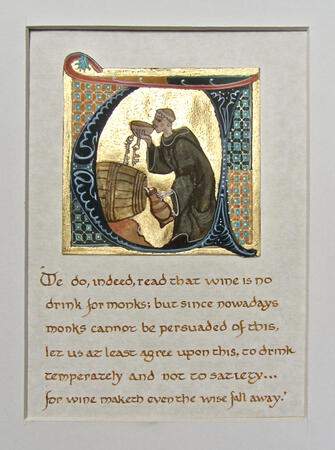 'We do, indeed, read that wine is no
drink for monks; but since nowadays
monks cannot be persuaded of this,
let us at least agree upon this, to drink
temperately and not to satiety...
for wine maketh even the wise fall away.'